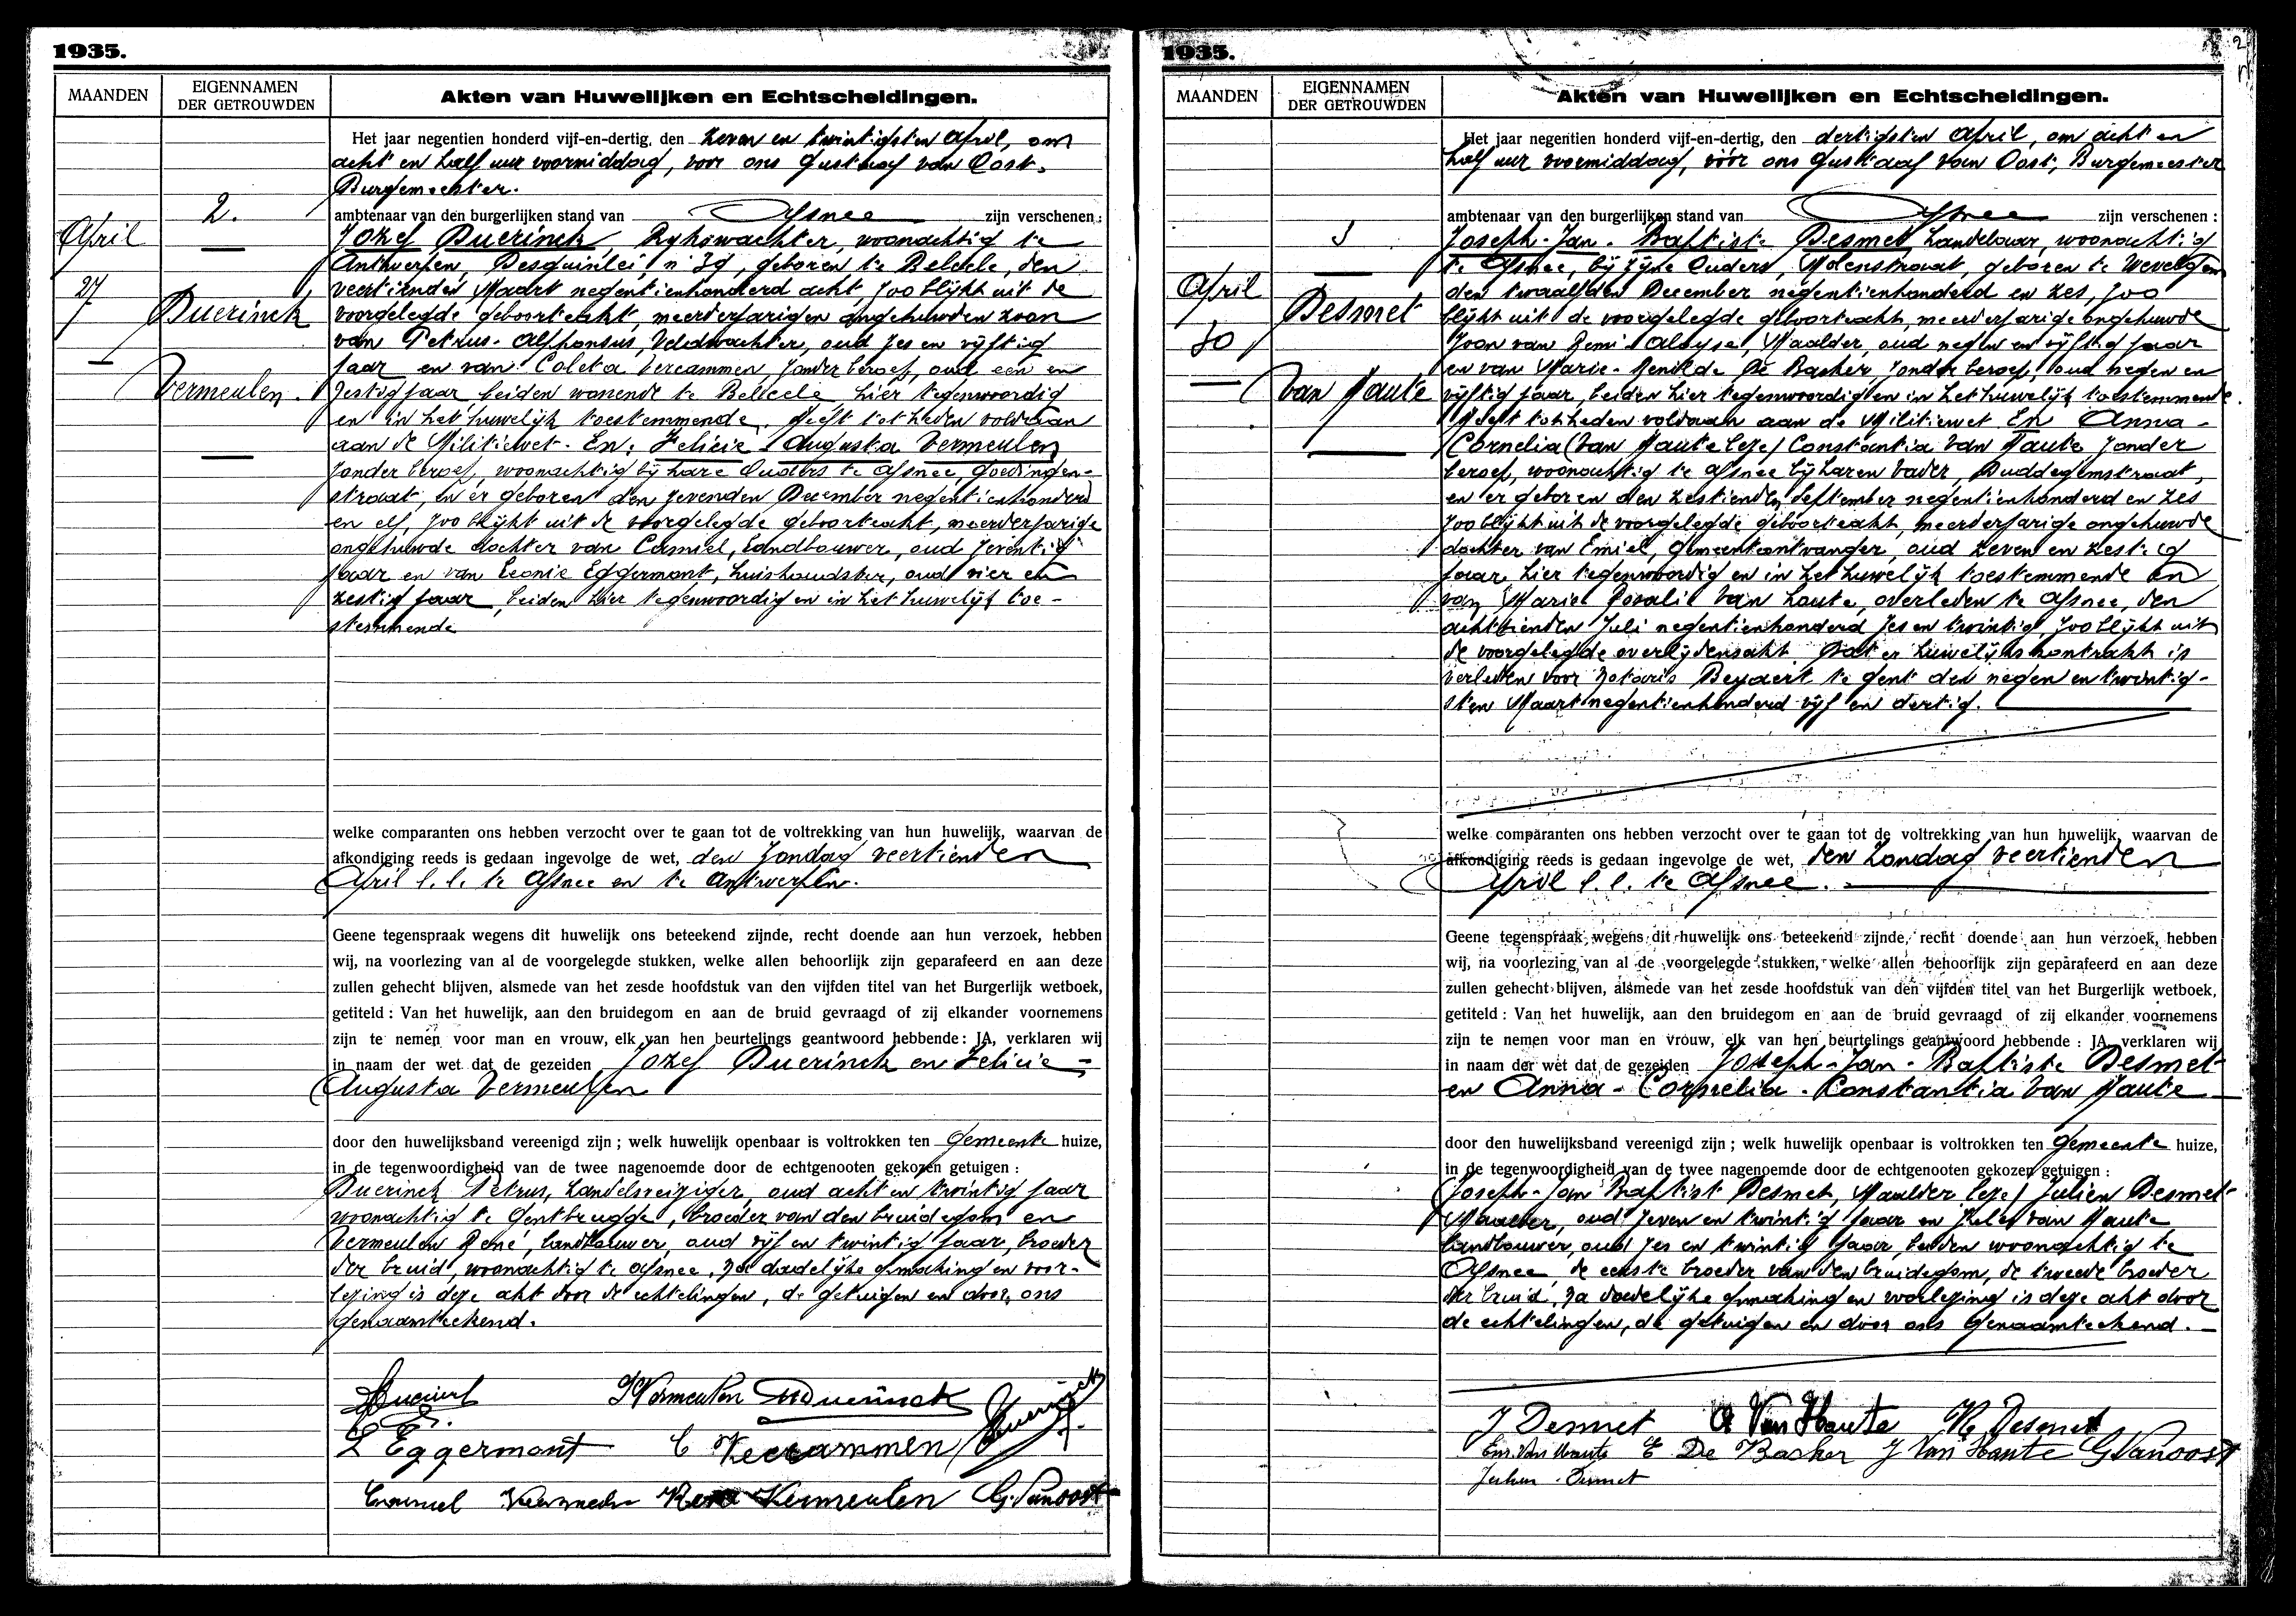 1935.
MAANDEN
EIGENNAMEN
DER GETROUWDEN
Akten van Huwelijken en Echtscheidingen.
2.
April
27
Duerinck
Vermeulen.
Het jaar negentien honderd vijf-en-dertig, den zeven en twintigsten April, om
acht en half uur voormiddag, voor ons Gustaaf van Oost.
Burgemeester.
ambtenaar van den burgerlijken stand van Afsnee zijn verschenen:
Jozef Duerinck, Rykswachter, woonachtig te
Antwerpen, Desguinlei, n° 39, geboren te Belcele, den
veertienden Maart negentienhonderd acht, zoo blijkt uit de
voorgelegde geboorteakt, meerderjarigen ongehuwden zoon
van Petrus-Alphonsus, Veldwachter, oud zes en vijftig
jaar en van Coleta Vercammen, zonder beroep, oud een en
zestig jaar beiden wonende te Belcele hier tegenwoordig
en in het huwelijk toestemmende, heeft tot heden voldaan
aan de Militiewet. En, Felicie-Augusta Vermeulen
zonder beroep, woonachtig bij hare Ouders te Afsnee, Goedingen-
straat, en er geboren den zevenden December negentienhonderd
en elf, zoo blijkt uit de voorgelegde geboorteakt, meerderjarige
ongehuwde dochter van Camiel, Landbouwer, oud zeventig
jaar en van Leonie Eggermont, huishoudster, oud vier en
zestig jaar, beiden hier tegenwoordig en in het huwelijk toe-
stemmende
welke comparanten ons hebben verzocht over te gaan tot de voltrekking van hun huwelijk, waarvan de
afkondiging reeds is gedaan ingevolge de wet, den Zondag veertienden
April l.l. te Afsnee en te Antwerpen.
Geene tegenspraak wegens dit huwelijk ons beteekend zijnde, recht doende aan hun verzoek, hebben
wij, na voorlezing van al de voorgelegde stukken, welke allen behoorlijk zijn geparafeerd en aan deze
zullen gehecht blijven, alsmede van het zesde hoofdstuk van den vijfden titel van het Burgerlijk wetboek,
getiteld: Van het huwelijk, aan den bruidegom en aan de bruid gevraagd of zij elkander voornemens
zijn te nemen voor man en vrouw, elk van hen beurtelings geantwoord hebbende: JA, verklaren wij
in naam der wet dat de gezeiden Jozef Duerinck en Felicie-
Augusta Vermeulen
door den huwelijksband vereenigd zijn; welk huwelijk openbaar is voltrokken ten Gemeente huize,
in de tegenwoordigheid van de twee nagenoemde door de echtgenooten gekozen getuigen:
Duerinck Petrus, handelsreiziger, oud acht en twintig jaar
woonachtig te Gentbrugge, broeder van den bruidegom en
Vermeulen René, landbouwer, oud vijf en twintig jaar, broeder
der bruid, woonachtig te Afsnee. Na dadelijke opmaking en voor-
lezing is deze akt door de echtelingen, de getuigen en door ons
genaamteekend.
Duerinck F Vermeulen Duerinck
L Eggermont C Vercammen Duerinck
René Vermeulen G. Vanoost
1935.
2
MAANDEN
EIGENNAMEN
DER GETROUWDEN
Akten van Huwelijken en Echtscheidingen.
3
April
30
Desmet
Van Haute
Het jaar negentien honderd vijf-en-dertig, den dertigsten April, om acht en
half uur voormiddag, vóór ons Gustaaf Van Oost, Burgemeester
ambtenaar van den burgerlijken stand van Afsnee zijn verschenen:
Joseph-Jan-Baptiste Desmet, Landbouwer, woonachtig
te Afsnee, bij zijne Ouders, Molenstraat, geboren te Wevelgem
den twaalfden December negentienhonderd en zes, zoo
blijkt uit de voorgelegde geboorteakt, meerderjarige ongehuwde
zoon van Remi-Aloyse, Maalder, oud negen en vijftig jaar
en van Marie-Renilde De Backer, zonder beroep, oud negen en
vijftig jaar, beiden hier tegenwoordig en in het huwelijk toestemmende.
Heeft tot heden voldaan aan de Militiewet En Anna-
Cornelia (Van Haute leze) Constantia Van Haute zonder
beroep, woonachtig te Afsnee bij haren vader, Buddegemstraat,
en er geboren den zestienden September negentienhonderd en zes
zoo blijkt uit de voorgelegde geboorteakt, meerderjarige ongehuwde
dochter van Emiel, Gemeenteontvanger, oud zeven en zestig
jaar, hier tegenwoordig en in het huwelijk toestemmende en
van Marie Rosalie Van Haute, overleden te Afsnee, den
achttienden Juli negentienhonderd zes en twintig, zoo blijkt uit
de voorgelegde overlijdensakt. Dat er huwelijkskontrakt is
verleden voor Notaris Beyaert te Gent den negen en twintig-
sten Maart negentienhonderd vijf en dertig.
welke comparanten ons hebben verzocht over te gaan tot de voltrekking van hun huwelijk, waarvan de
afkondiging reeds is gedaan ingevolge de wet, den Zondag veertienden
April l.l. te Afsnee.
Geene tegenspraak wegens dit huwelijk ons beteekend zijnde, recht doende aan hun verzoek, hebben
wij, na voorlezing van al de voorgelegde stukken, welke allen behoorlijk zijn geparafeerd en aan deze
zullen gehecht blijven, alsmede van het zesde hoofdstuk van den vijfden titel van het Burgerlijk wetboek,
getiteld: Van het huwelijk, aan den bruidegom en aan de bruid gevraagd of zij elkander voornemens
zijn te nemen voor man en vrouw, elk van hen beurtelings geantwoord hebbende: JA, verklaren wij
in naam der wet dat de gezeiden Joseph-Jan-Baptiste Desmet
en Anna-Cornelia-Constantia Van Haute
door den huwelijksband vereenigd zijn; welk huwelijk openbaar is voltrokken ten Gemeente huize,
in de tegenwoordigheid van de twee nagenoemde door de echtgenooten gekozen getuigen:
(Joseph-Jan Baptist Desmet, Maalder leze) Julien Desmet-
Maalder, oud zeven en twintig jaar en Jules van Haute
landbouwer, oud zes en twintig jaar, beiden woonachtig te
Afsnee, de eerste broeder van den bruidegom, de tweede broeder
der bruid, Na dadelijke opmaking en voorlezing is deze akt door
de echtelingen, de getuigen en door ons genaamteekend.
J Desmet A Van Haute Re Desmet
Em. Van Haute E De Backer J Van Haute G Vanoost
Julien Desmet